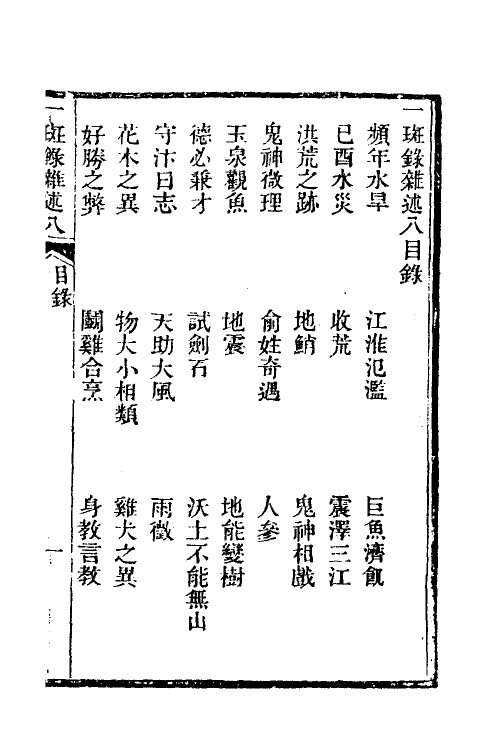 一斑錄雜述八目錄
頻年水旱　江淮氾濫　巨魚濟飢
己酉水災　收荒　震澤三江
洪荒之跡　地鮹　鬼神相戲
鬼神微理　俞姓奇遇　人參
玉泉觀魚　地震　地能變樹
德必乗才　試劍石　沃土不能無山
守汴日志　天助大風　雨徵
花木之異　物大小相類　雞犬之異
好勝之弊　鬭雞合烹　身教言教
一斑錄雜述八　目錄　一